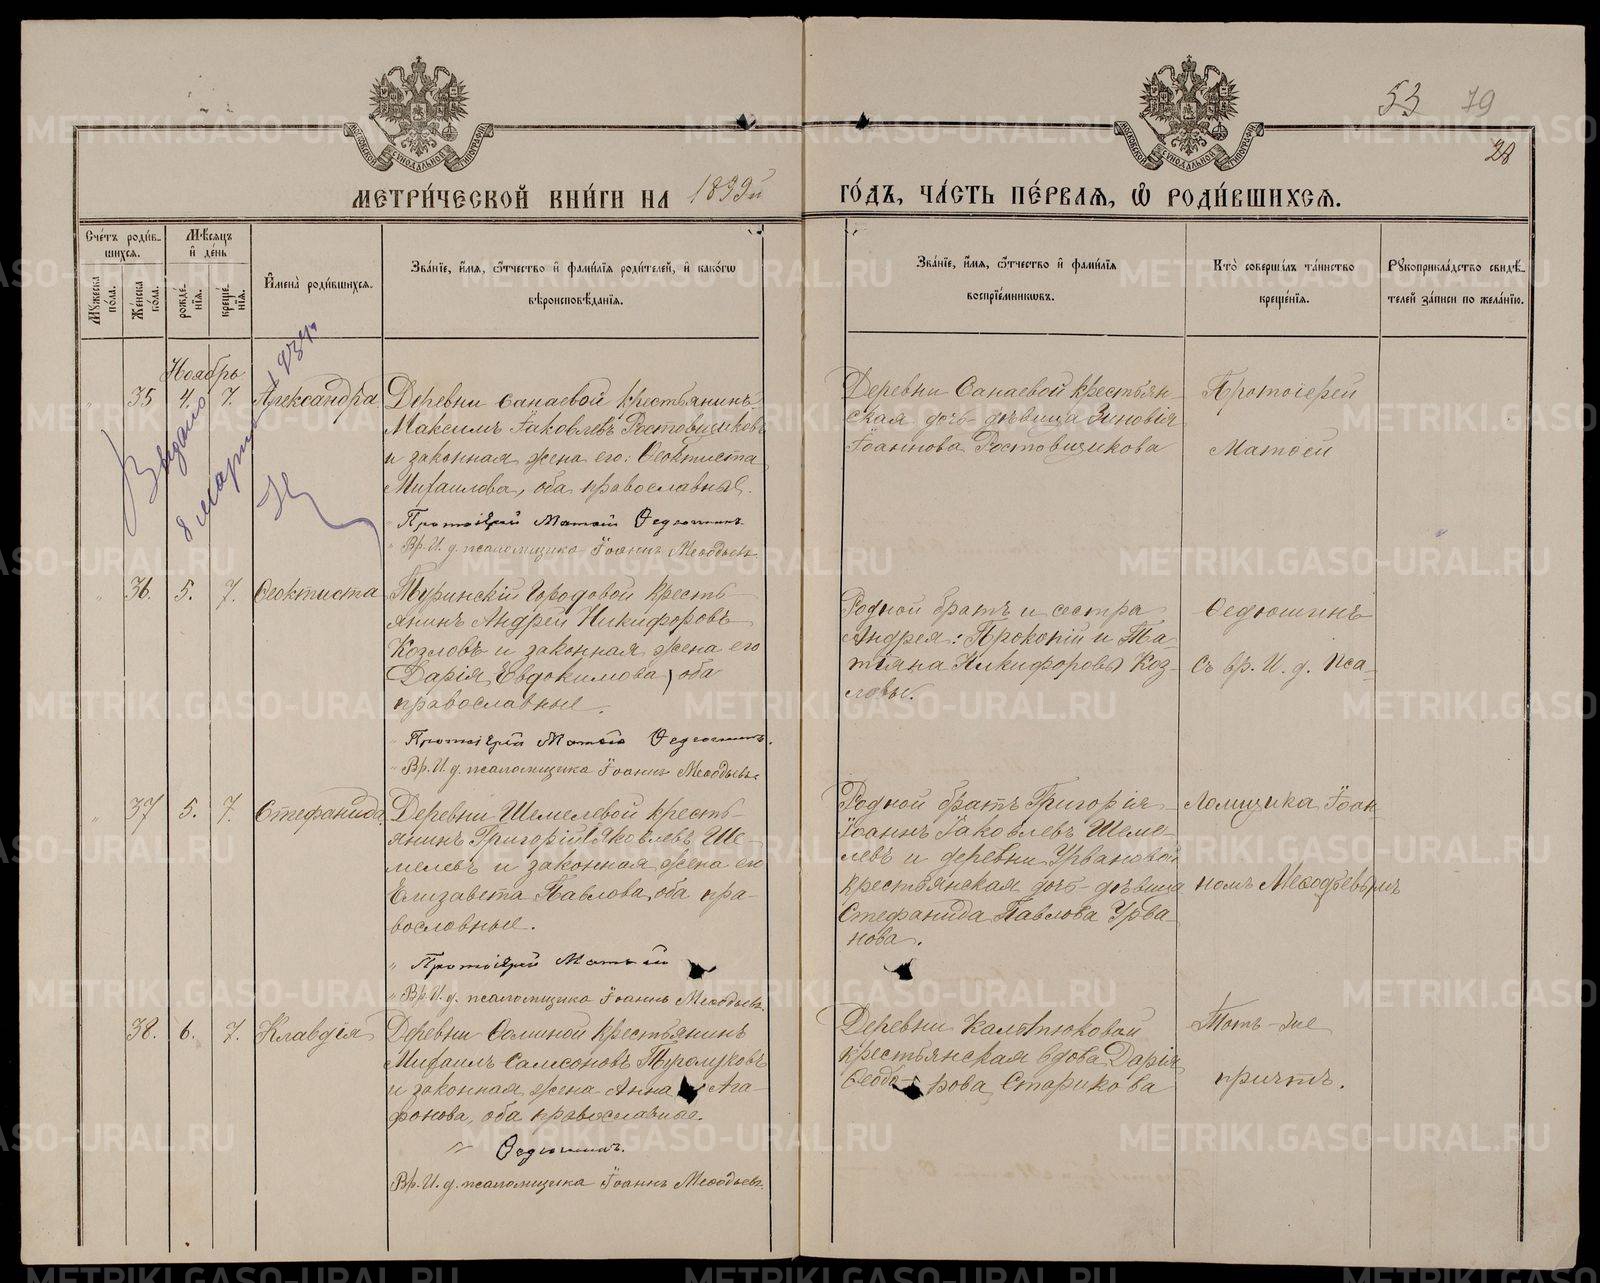 53 79
28
МЕТРИ́ЧЕСКОЙ КНИ́ГИ НА 1899й
ГО́ДЪ, ЧА́СТЬ ПЕ́РВАЯ, Ѡ РОДИ́ВШИХСЯ.
Сче́тъ роди́в-
шихся.
Мужеска по́ла.
Же́нска по́ла.
Мѣ́сяцъ
и де́нь
рожде́-
нія.
креще́-
нія.
Имена̀ роди́вшихся.
Зва́ніе, и́мя, ѻ́тчество и фами́лія роди́телей, и како́гѡ
вѣроисповѣ́данія.
Зва́ніе, и́мя, ѻ́тчество и фами́лія
воспріе́мниковъ.
Кто̀ соверша́лъ та́инство
креще́нія.
Рукоприкла́дство свидѣ́-
телей за́писи по жела́нію.
Ноябрь
35 4. 7. Александра
Деревни Санаевой крестьянинъ
Максимъ Іаковлевъ Ростовщиковъ
и законная жена его: Ѳеоктиста
Михаилова, оба православныє.
Протоіерей Матѳій Ѳедюшинъ
Вр. И. д. псаломщика Іоаннъ Меѳодьевъ
Деревни Санаевой крестьян-
ская дочь-дѣвица Зиновія
Іоаннова Ростовщикова
Протоіерей
Матѳей
Выдано
8 марта 1934 г.
36. 5. 7. Ѳеоктиста
Туринскій Городовой кресть-
янинъ Андрей Никифоровъ
Козловъ и законная жена его
Дарія Евдокимова, оба
православные.
Протоіерей Матѳій Ѳедюшинъ.
Вр. И. д. псаломщика Іоаннъ Меѳодьевъ
Родной братъ и сестра
Андрея: Прокопій и Та-
тіяна Никифоровы Коз-
ловы.
Ѳедюшинъ
съ вр. И. д. Пса-
37 5. 7. Стефанида
Деревни Шемелевой кресть-
янинъ Григорій Іяковлевъ Ше-
мелевъ и законная жена его
Елизавета Павлова, оба пра-
вославные.
" Протоіерей Матѳій
" Вр. И. д. псаломщика Іоаннъ Меѳодьевъ.
Родной братъ Григорія
Іоаннъ Іаковлевъ Шеме-
левъ и деревни Урвановой
крестьянская дочь-дѣвица
Стефанида Павлова Урва-
нова.
ломщика Іоан-
номъ Меѳодьевымъ
38. 6. 7. Клавдія
Деревни Ѳоминой крестьянинъ
Михаилъ Самсоновъ
и законная жена Анна Ага-
фонова, оба православные.
" Ѳедюшинъ.
Вр. И. д. псаломщика Іоаннъ Меѳодьевъ.
Деревни Калтюковой
крестьянская вдова Дарія
Ѳеодо-рова Старикова
Тотъ-же
причтъ.